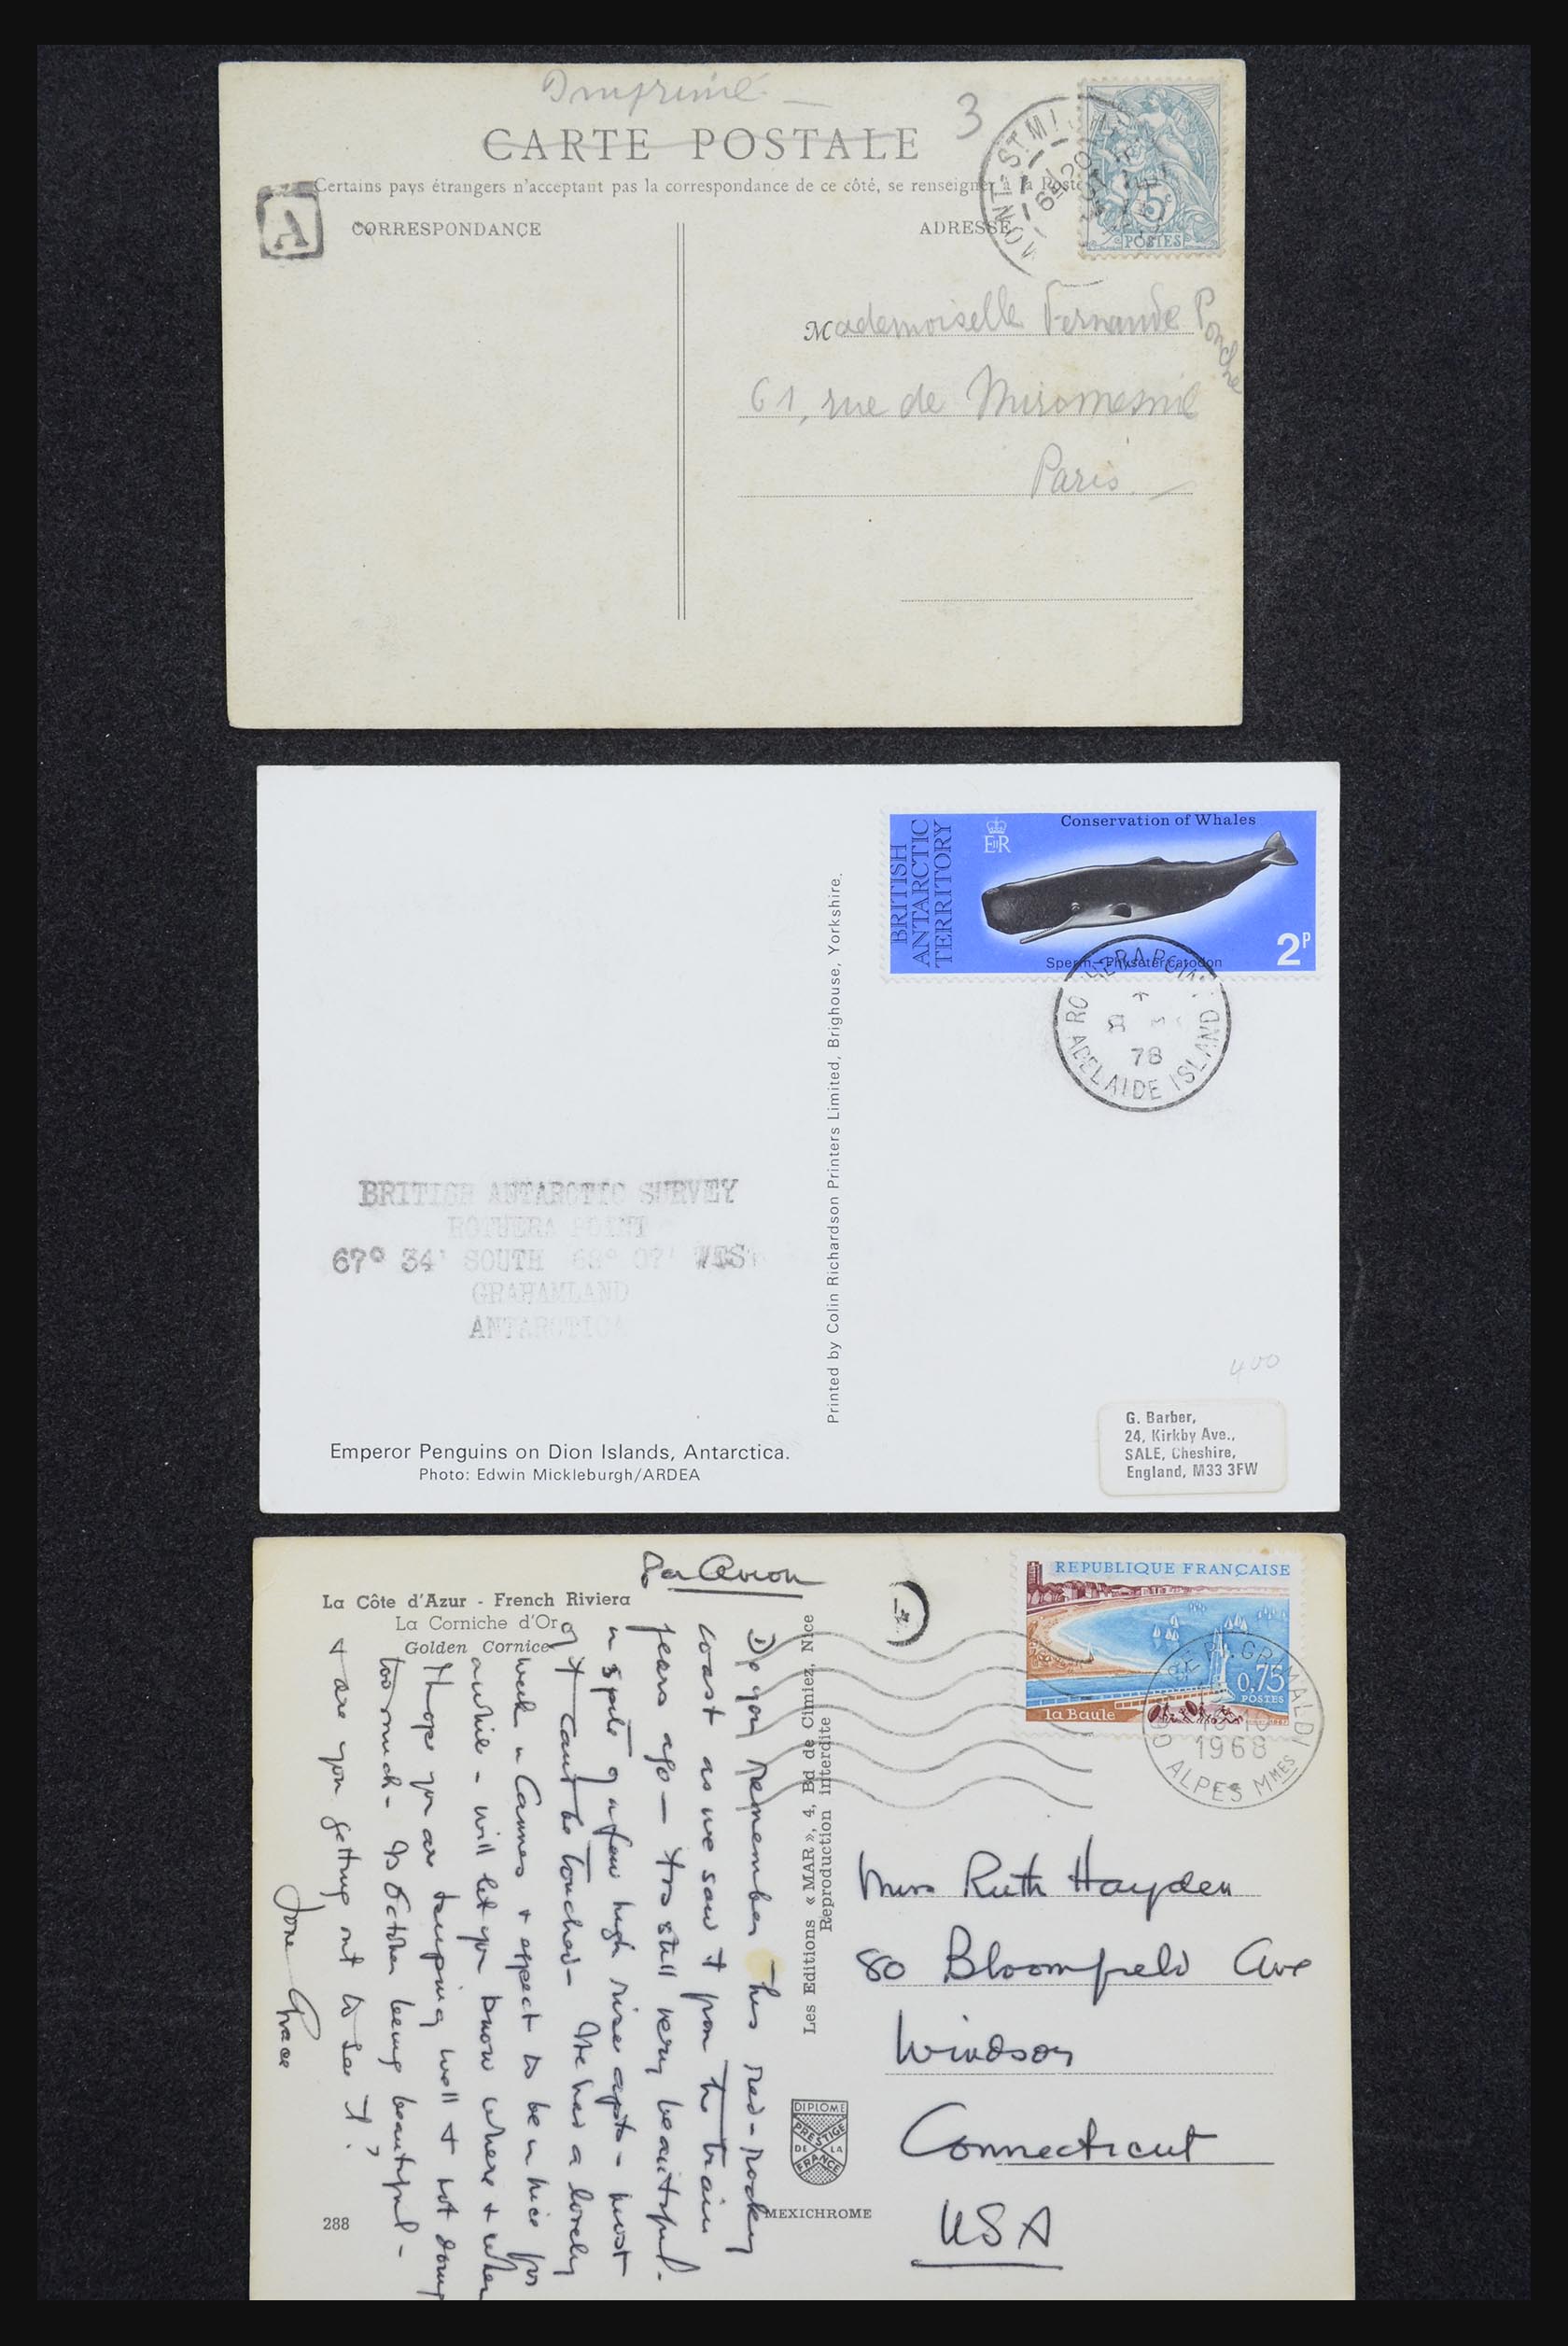 Imprimé
CARTE POSTALE
3
Certains pays étrangers n'acceptant pas la correspondance de ce côté, se renseigner à la Poste
A
CORRESPONDANCE
ADRESSE
MONT-ST-MI
5c
POSTES
Mademoiselle Fernande Ponche
61, rue de Miromesnil
Paris.
Conservation of Whales
BRITISH
ANTARCTIC
TERRITORY
EIIR
2P
Sperm-Physeter catodon
ROTHERA POINT
78
ADELAIDE ISLAND
Printed by Colin Richardson Printers Limited, Brighouse, Yorkshire.
BRITISH ANTARCTIC SURVEY
ROTHERA POINT
67° 34' SOUTH 68° 07' WEST
GRAHAMLAND
ANTARCTICA
400
Emperor Penguins on Dion Islands, Antarctica.
Photo: Edwin Mickleburgh/ARDEA
G. Barber,
24, Kirkby Ave.,
SALE, Cheshire,
England, M33 3FW
Par Avion
La Côte d'Azur - French Riviera
La Corniche d'Or
Golden Cornice
REPUBLIQUE FRANÇAISE
0,75
POSTES
la Baule
GRIMALDI
1968
ALPES MMES
Do you remember this red-rocky
coast as we saw it from the train
years ago - It is still very beautiful -
in spite of a few high rise apts - most
of it can't be touched - We had a lovely
week in Cannes & expect to be in Nice for
awhile - will let you know where & when
Hope you are keeping well & not doing
too much - Is October being beautiful -
& are you getting out to see it?
Love Grace
Les Editions « MAR », 4, Bd de Cimiez, Nice
Reproduction interdite
Miss Ruth Hayden
80 Bloomfield Ave
Windsor
Connecticut
USA
DIPLOME
PRESTIGE
DE LA
FRANCE
MEXICHROME
288